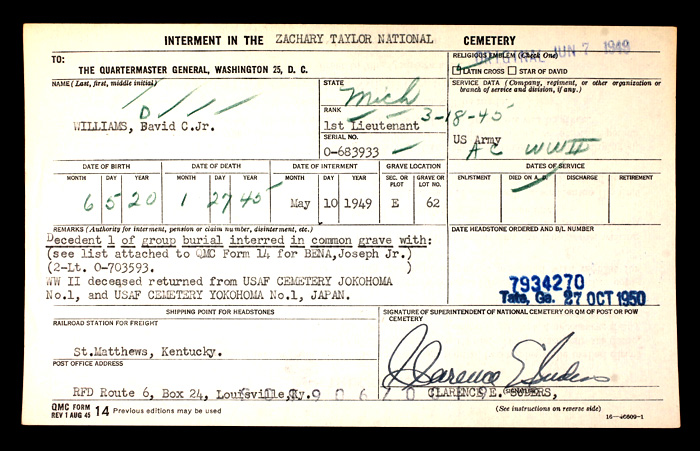 INTERMENT IN THE ZACHARY TAYLOR NATIONAL CEMETERY
ORIGINAL JUN 7 1949
TO:
THE QUARTERMASTER GENERAL, WASHINGTON 25, D. C.
RELIGIOUS EMBLEM (Check One)
LATIN CROSS STAR OF DAVID
NAME (Last, first, middle initial)
D
WILLIAMS, Bavid C.Jr.
STATE
Mich
RANK
1st Lieutenant
3-18-45
SERIAL NO.
O-683933
SERVICE DATA (Company, regiment, or other organization or branch of service and division, if any.)
US Army
AC WWII
DATE OF BIRTH
MONTH DAY YEAR
6 5 20
DATE OF DEATH
MONTH DAY YEAR
1 27 45
DATE OF INTERMENT
MONTH DAY YEAR
May 10 1949
GRAVE LOCATION
SEC. OR PLOT
GRAVE OR LOT NO.
E 62
DATES OF SERVICE
ENLISTMENT DIED ON A. D. DISCHARGE RETIREMENT
REMARKS (Authority for interment, pension or claim number, disinterment, etc.)
Decedent 1 of group burial interred in common grave with:
(see list attached to QMC Form 14 for BENA,Joseph Jr.)
(2-Lt. O-703593. )
WW II deceased returned from USAF CEMETERY JOKOHOMA
No.1, and USAF CEMETERY YOKOHOMA No.1, JAPAN.
DATE HEADSTONE ORDERED AND B/L NUMBER
7934270
Tate, Ga. 27 OCT 1950
SHIPPING POINT FOR HEADSTONES
RAILROAD STATION FOR FREIGHT
St.Matthews, Kentucky.
POST OFFICE ADDRESS
RFD Route 6, Box 24, Louisville,Ky.
SIGNATURE OF SUPERINTENDENT OF NATIONAL CEMETERY OR QM OF POST OR POW CEMETERY
Clarence E. Suders
CLARENCE E. SUDERS,
QMC FORM
REV 1 AUG 45 14 Previous editions may be used
(See instructions on reverse side)
16—46609-1